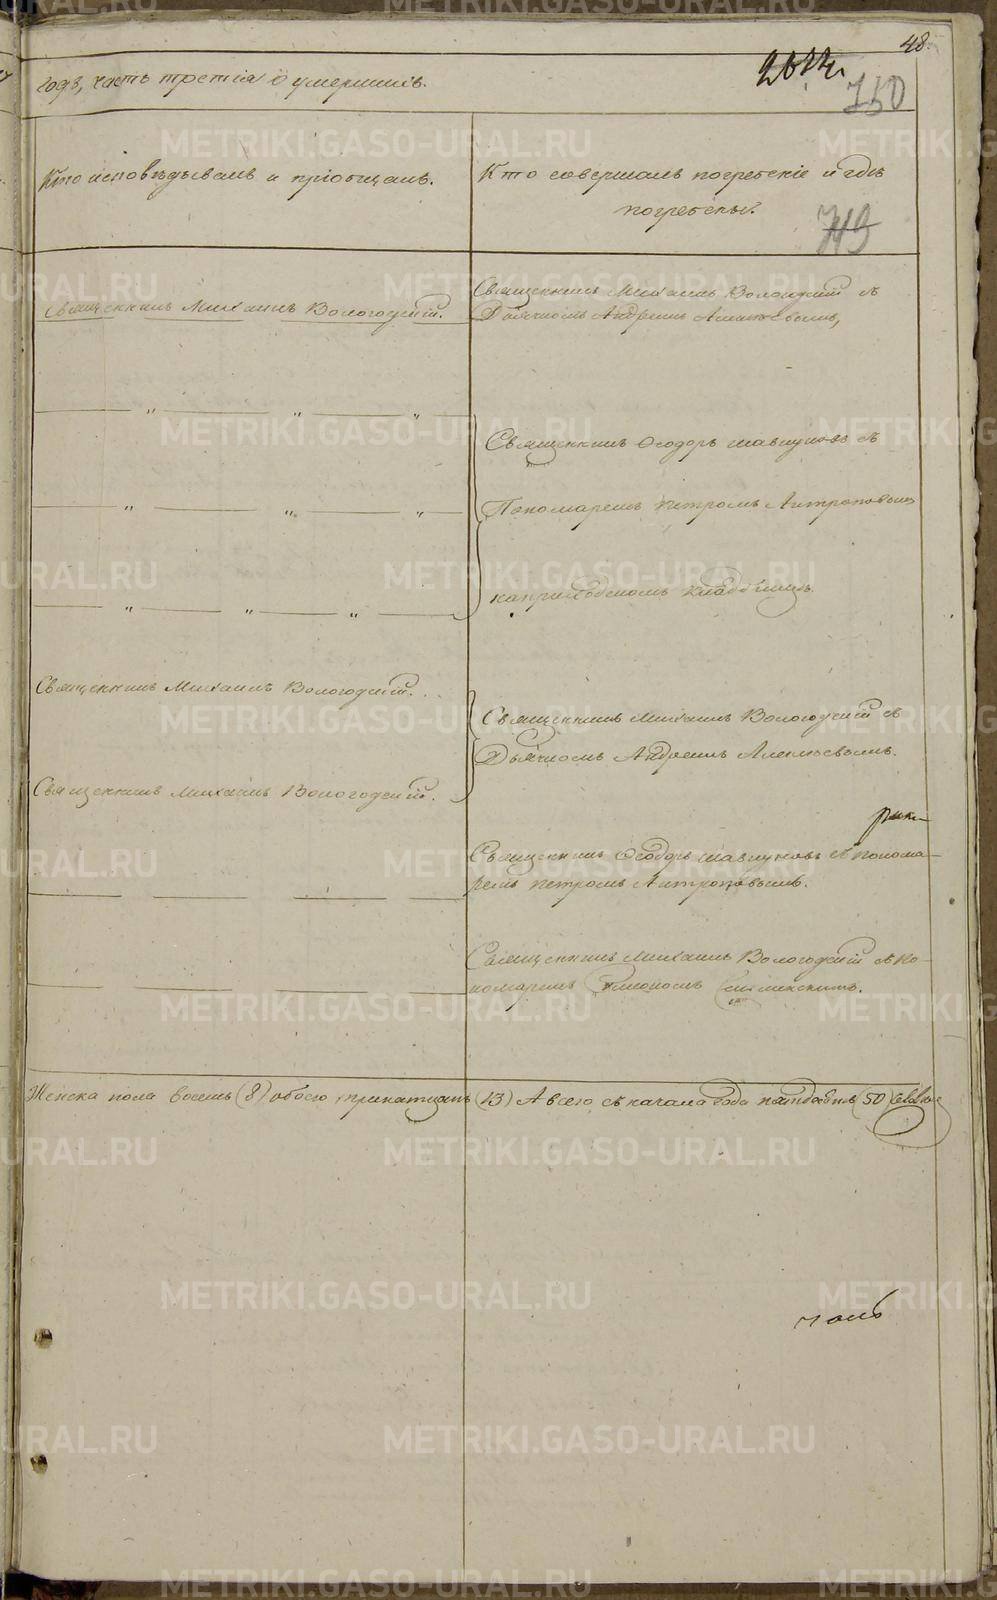 48.
годѣ, часть третія о умершихъ.
750
Кто исповѣдывалъ и пріобщалъ.
Кто совершалъ погребеніе и гдѣ
погребены.
749
Священникъ Михаилъ Вологодскій.
Священникъ Михаилъ Вологодскій съ
Дьячкомъ Андреемъ Алексѣевымъ,
Священникъ Ѳеодоръ съ
Пономаремъ Петромъ Антроповымъ
на приходскомъ кладбищѣ.
Священникъ Михаилъ Вологодскій.
Священникъ Михаилъ Вологодскій съ
Дьячкомъ Андреемъ Алексѣевымъ.
Священникъ Михаилъ Вологодскій.
Священникъ Ѳеодоръ съ понома-
ремъ Петромъ Антроповымъ.
Священникъ Михаилъ Вологодскій съ по-
номаремъ
Женска пола восемь (8) обоего тринатцать (13) А всего съ начала года пятьдесятъ (50)
METRIKI.GASO-URAL.RU